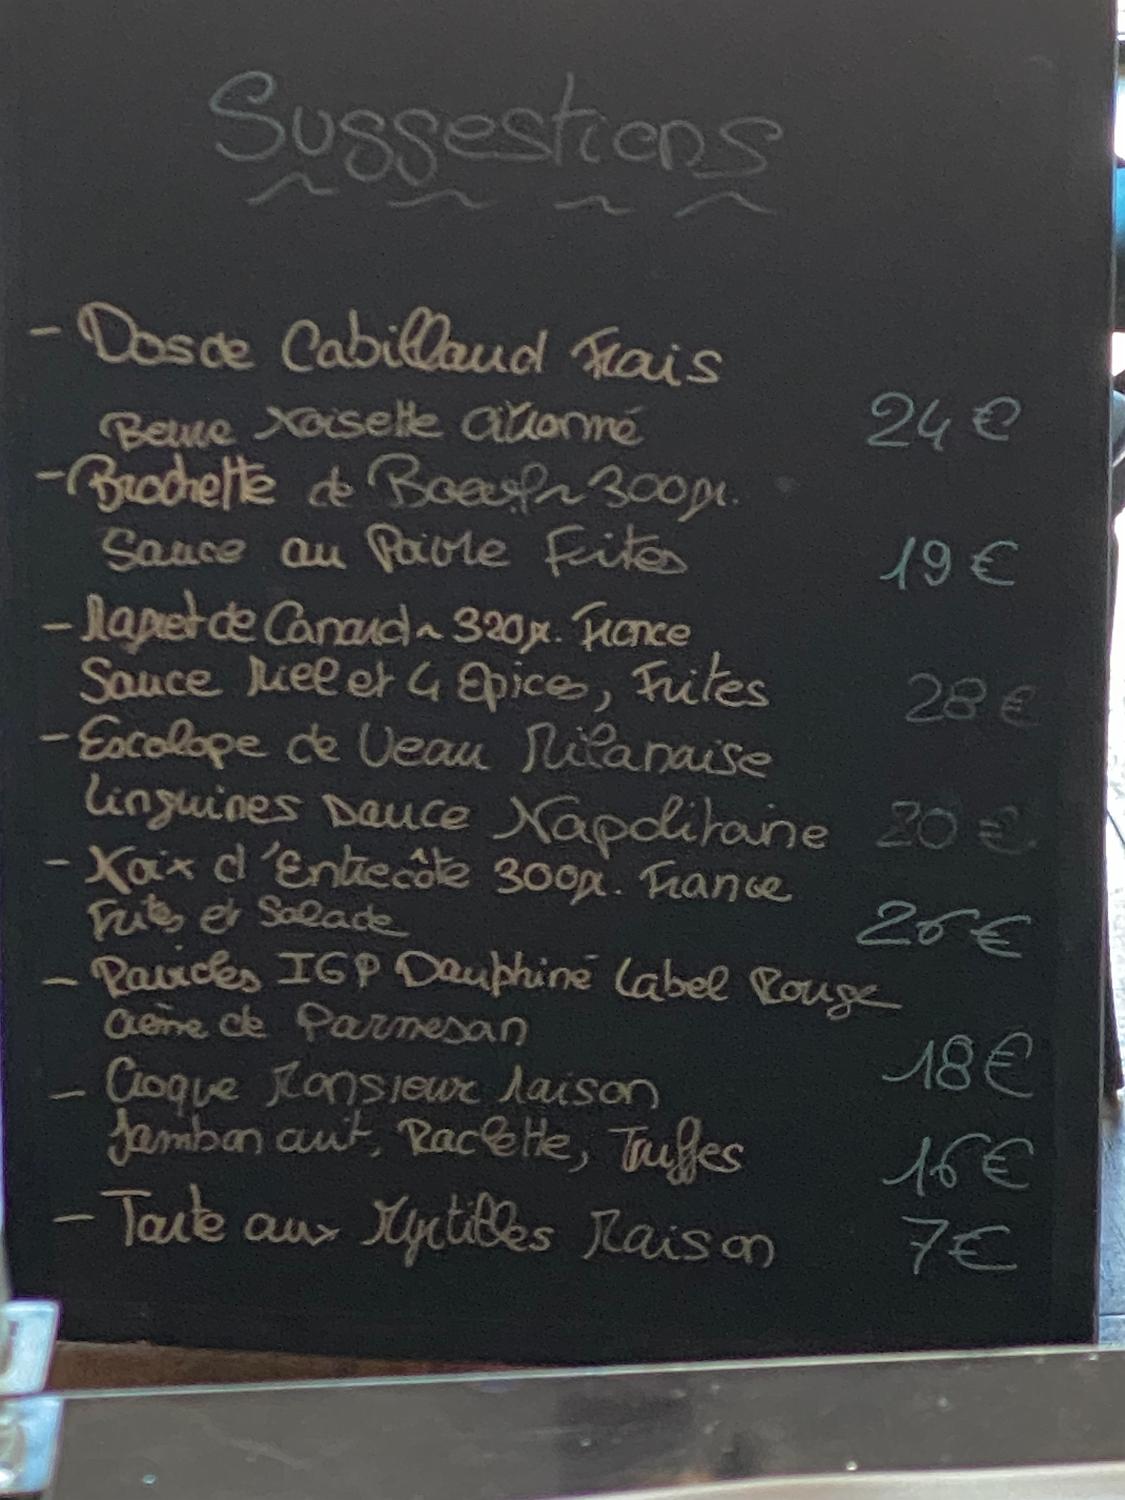 Suggestions
- Dos de Cabillaud Frais
Beurre Noisette Citronné 24 €
- Brochette de Boeuf ~ 300gr.
Sauce au Poivre Frites 19 €
- Magret de Canard ~ 320gr. France
Sauce Miel et 4 Epices, Frites 28 €
- Escalope de Veau Milanaise
Linguines Sauce Napolitaine 20 €
- Noix d'Entrecôte 300gr. France
Frites et Salade 26 €
- Ravioles IGP Dauphiné Label Rouge
Crème de Parmesan 18 €
- Croque Monsieur Maison
Jambon cuit, Raclette, Truffes 16 €
- Tarte aux Myrtilles Maison 7 €